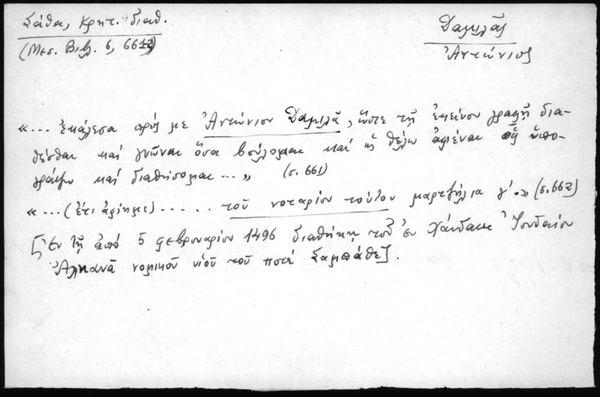 Σάθα, Κρητ. διαθ.
(Μεσ. Βιβλ. 6, 661-2)
Δαμιλᾶς
Ἀντώνιος
«... ἐκάλεσα πρός με Ἀντώνιον Δαμιλᾶ, ὥστε τῇ ἐκείνου γραφῇ δια-
θέσθαι καί γνῶναι ὅσα βούλομαι καί ὡς θέλω ἀφιέναι ὡς ὑπο-
γράψω καί διαθήσομαι ...» (σ. 661)
«... (ἔτι ἀφίημι) ..... τοῦ νοταρίου τούτου μαρτζήλια γ΄.» (σ. 662)
[Ἐν τῇ ἀπό 5 φεβρουαρίου 1496 διαθήκῃ τοῦ ἐν Χάνδακι Ἰουδαίου
Ἀλκανᾶ νομικοῦ υἱοῦ τοῦ ποτέ Σαμπάθε].